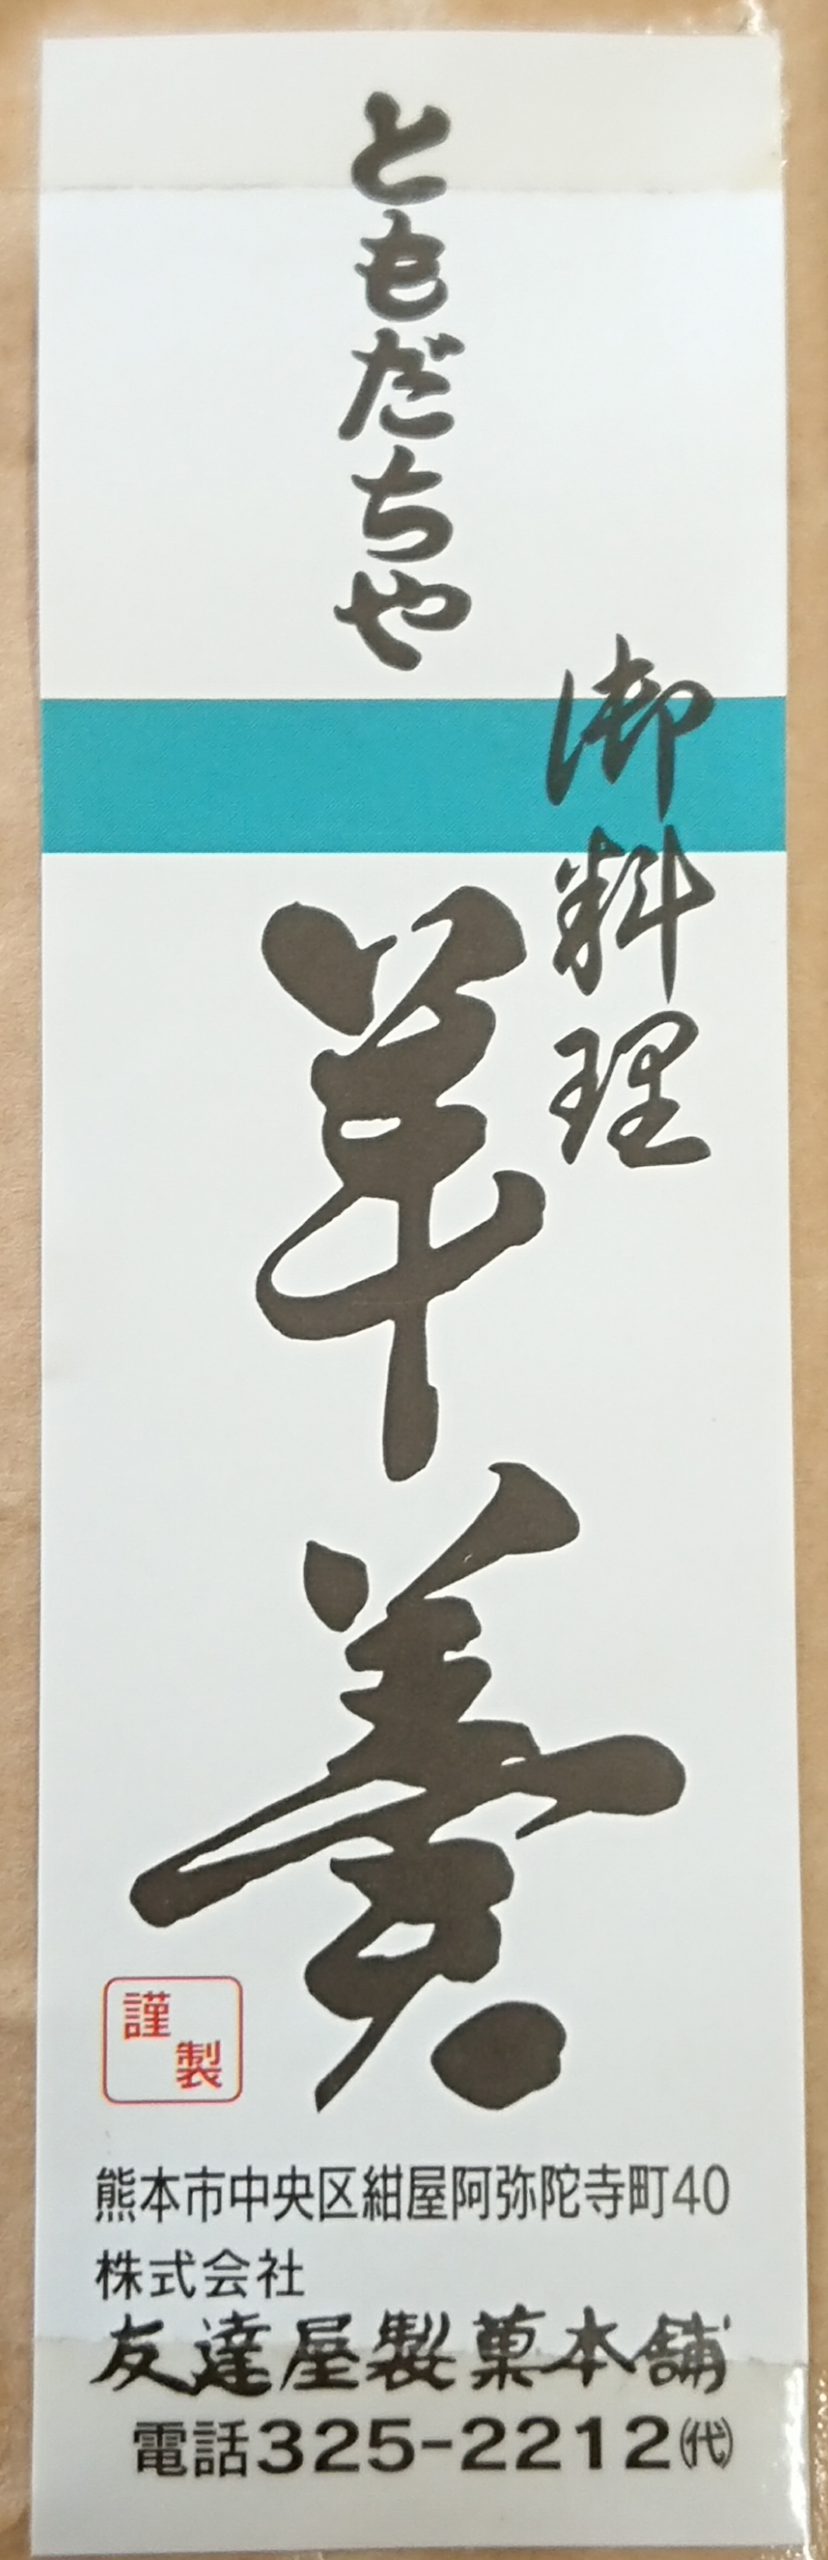 ともだちや
御料理
羊羹
謹製
熊本市中央区紺屋阿弥陀寺町40
株式会社
友達屋製菓本舗
電話325-2212㈹